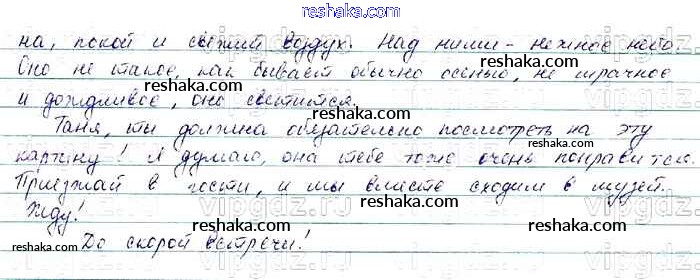 reshaka.com
на, покой и свежий воздух. Над ними - нежное небо.
Оно не такое, как бывает обычно осенью, не мрачное
и дождливое, оно светится.
Таня, ты должна обязательно посмотреть на эту
картину! Я думаю, она тебе тоже очень понравится.
Приезжай в гости, и мы вместе сходим в музей.
Жду!
До скорой встречи!
reshaka.com
reshaka.com
reshaka.com
reshaka.com
reshaka.com
reshaka.com
reshaka.com
reshaka.com
reshaka.com
vipgdz.com
vipgdz.com